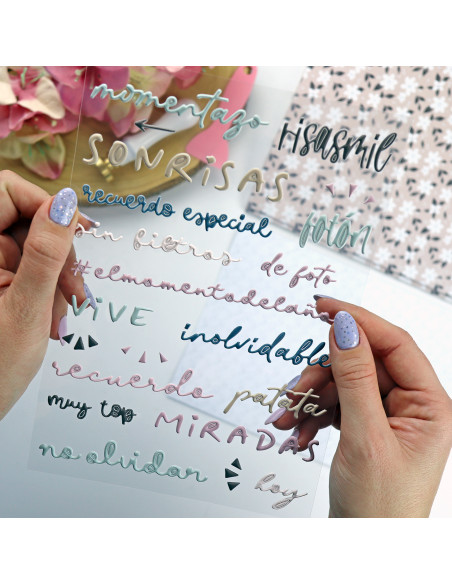 momentazo
SONRISAS
risasmil
recuerdo especial
fotón
sin filtros
de foto
#elmomentodelaño
VIVE
inolvidable
recuerdo
patata
muy top
MIRADAS
no olvidar
hoy